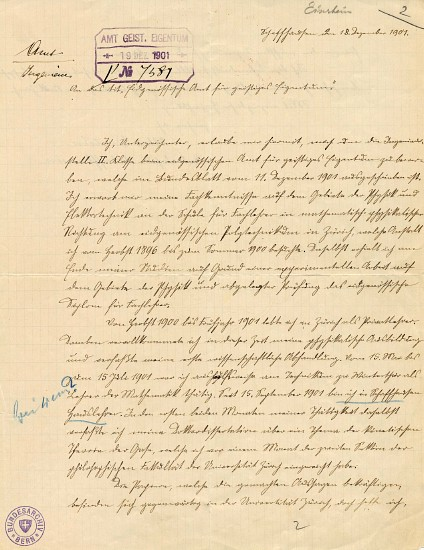 Einstein
2
Schaffhausen d. 18. Dezember 1901.
AMT GEIST. EIGENTUM
19 DEZ. 1901
№ 7581
Amt
Ingenieur
An das tit. Eidgenössische Amt für geistiges Eigentum!
Ich, Unterzeichneter, erlaube mir hiermit, mich um die Ingenieur-
stelle II. Klasse beim eidgenössischen Amt für geistiges Eigentum zu bewer-
ben, welche im Bundesblatt vom 11. Dezember 1901 ausgeschrieben ist.
Ich erwarb mir meine Fachkenntnisse auf dem Gebiete der Physik und
Elektrotechnik an der Schule für Fachlehrer in mathematisch-physikalischer
Richtung am eidgenössischen Polytechnikum in Zürich, welche Anstalt
ich vom Herbst 1896 bis zum Sommer 1900 besuchte. Daselbst erhielt ich am
Ende meiner Studien auf Grund einer experimentellen Arbeit auf
dem Gebiete der Physik und abgelegter Prüfung das eidgenössische
Diplom für Fachlehrer.
Von Herbst 1900 bis Frühjahr 1901 lebte ich in Zürich als Privatlehrer.
Daneben vervollkommnete ich in dieser Zeit meine physikalische Ausbildung
und verfasste meine erste wissenschaftliche Abhandlung. Vom 15. Mai bis
zum 15 Juli 1901 war ich aushilfsweise am Technikum zu Winterthur als
Lehrer der Mathematik thätig. Seit 15. September 1901 bin ich in Schaffhausen
Hauslehrer. In den ersten beiden Monaten meiner Thätigkeit daselbst
verfasste ich meine Doktordissertation über ein Thema der kinetischen
Theorie der Gase, welche ich vor einem Monat der zweiten Sektion der
philosophischen Fakultät der Universität Zürich eingereicht habe.
Die Papiere, welche die gemachten Aussagen bekräftigen,
befinden sich gegenwärtig in der Universität Zürich, doch hoffe ich,
2
BUNDESARCHIV
BERN